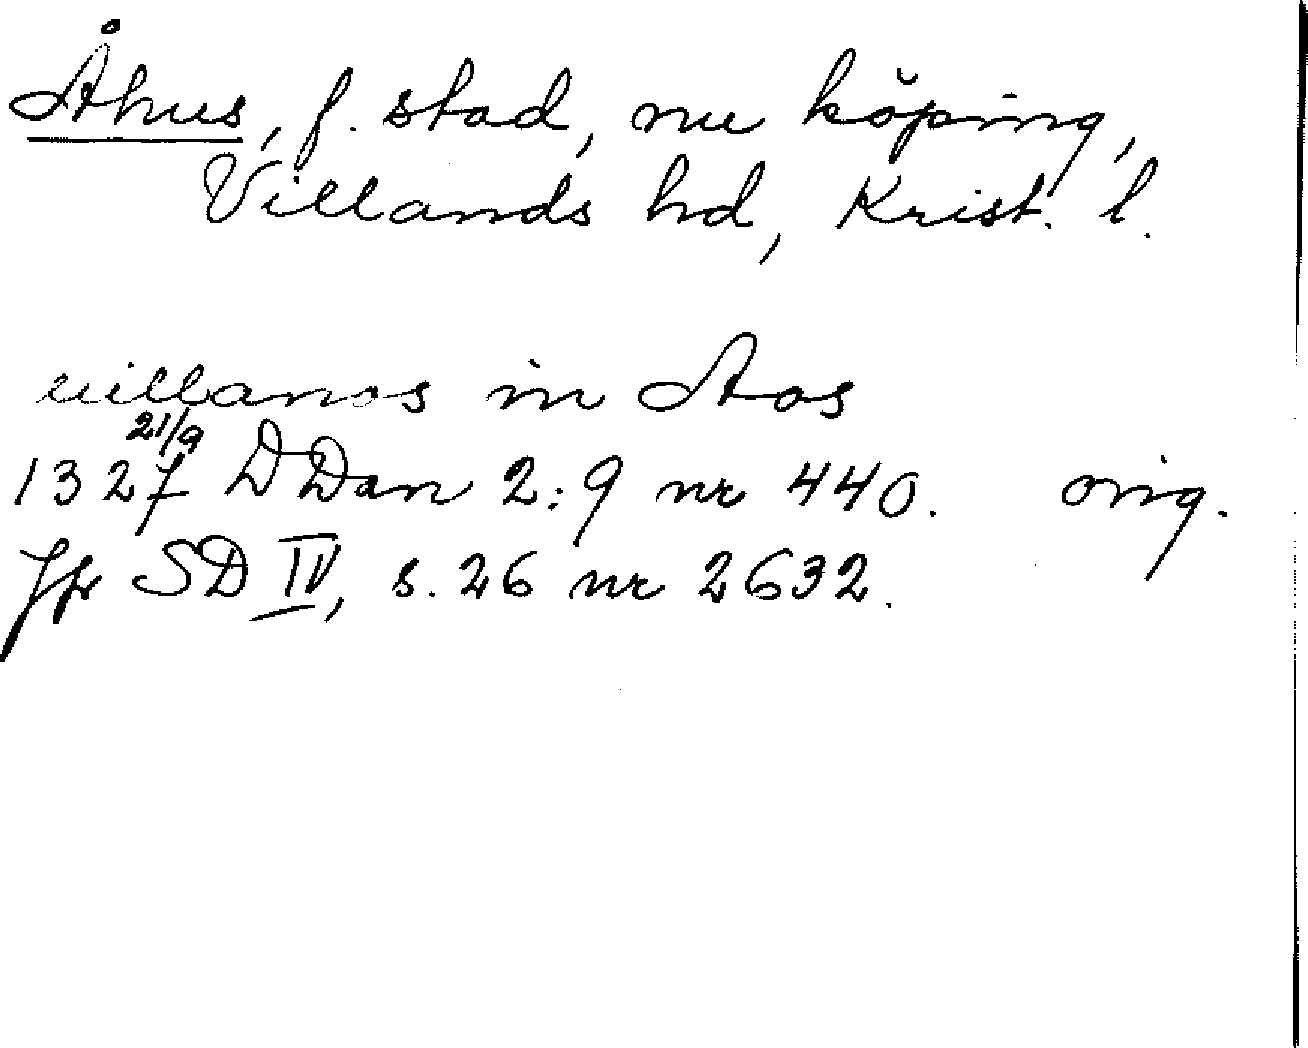 Åhus, f. stad, nu köping,
Villands hd, Krist. l.
uillanos in Aos
21/9
1327 DDan 2:9 nr 440. orig.
Jfr SD IV, s. 26 nr 2632.